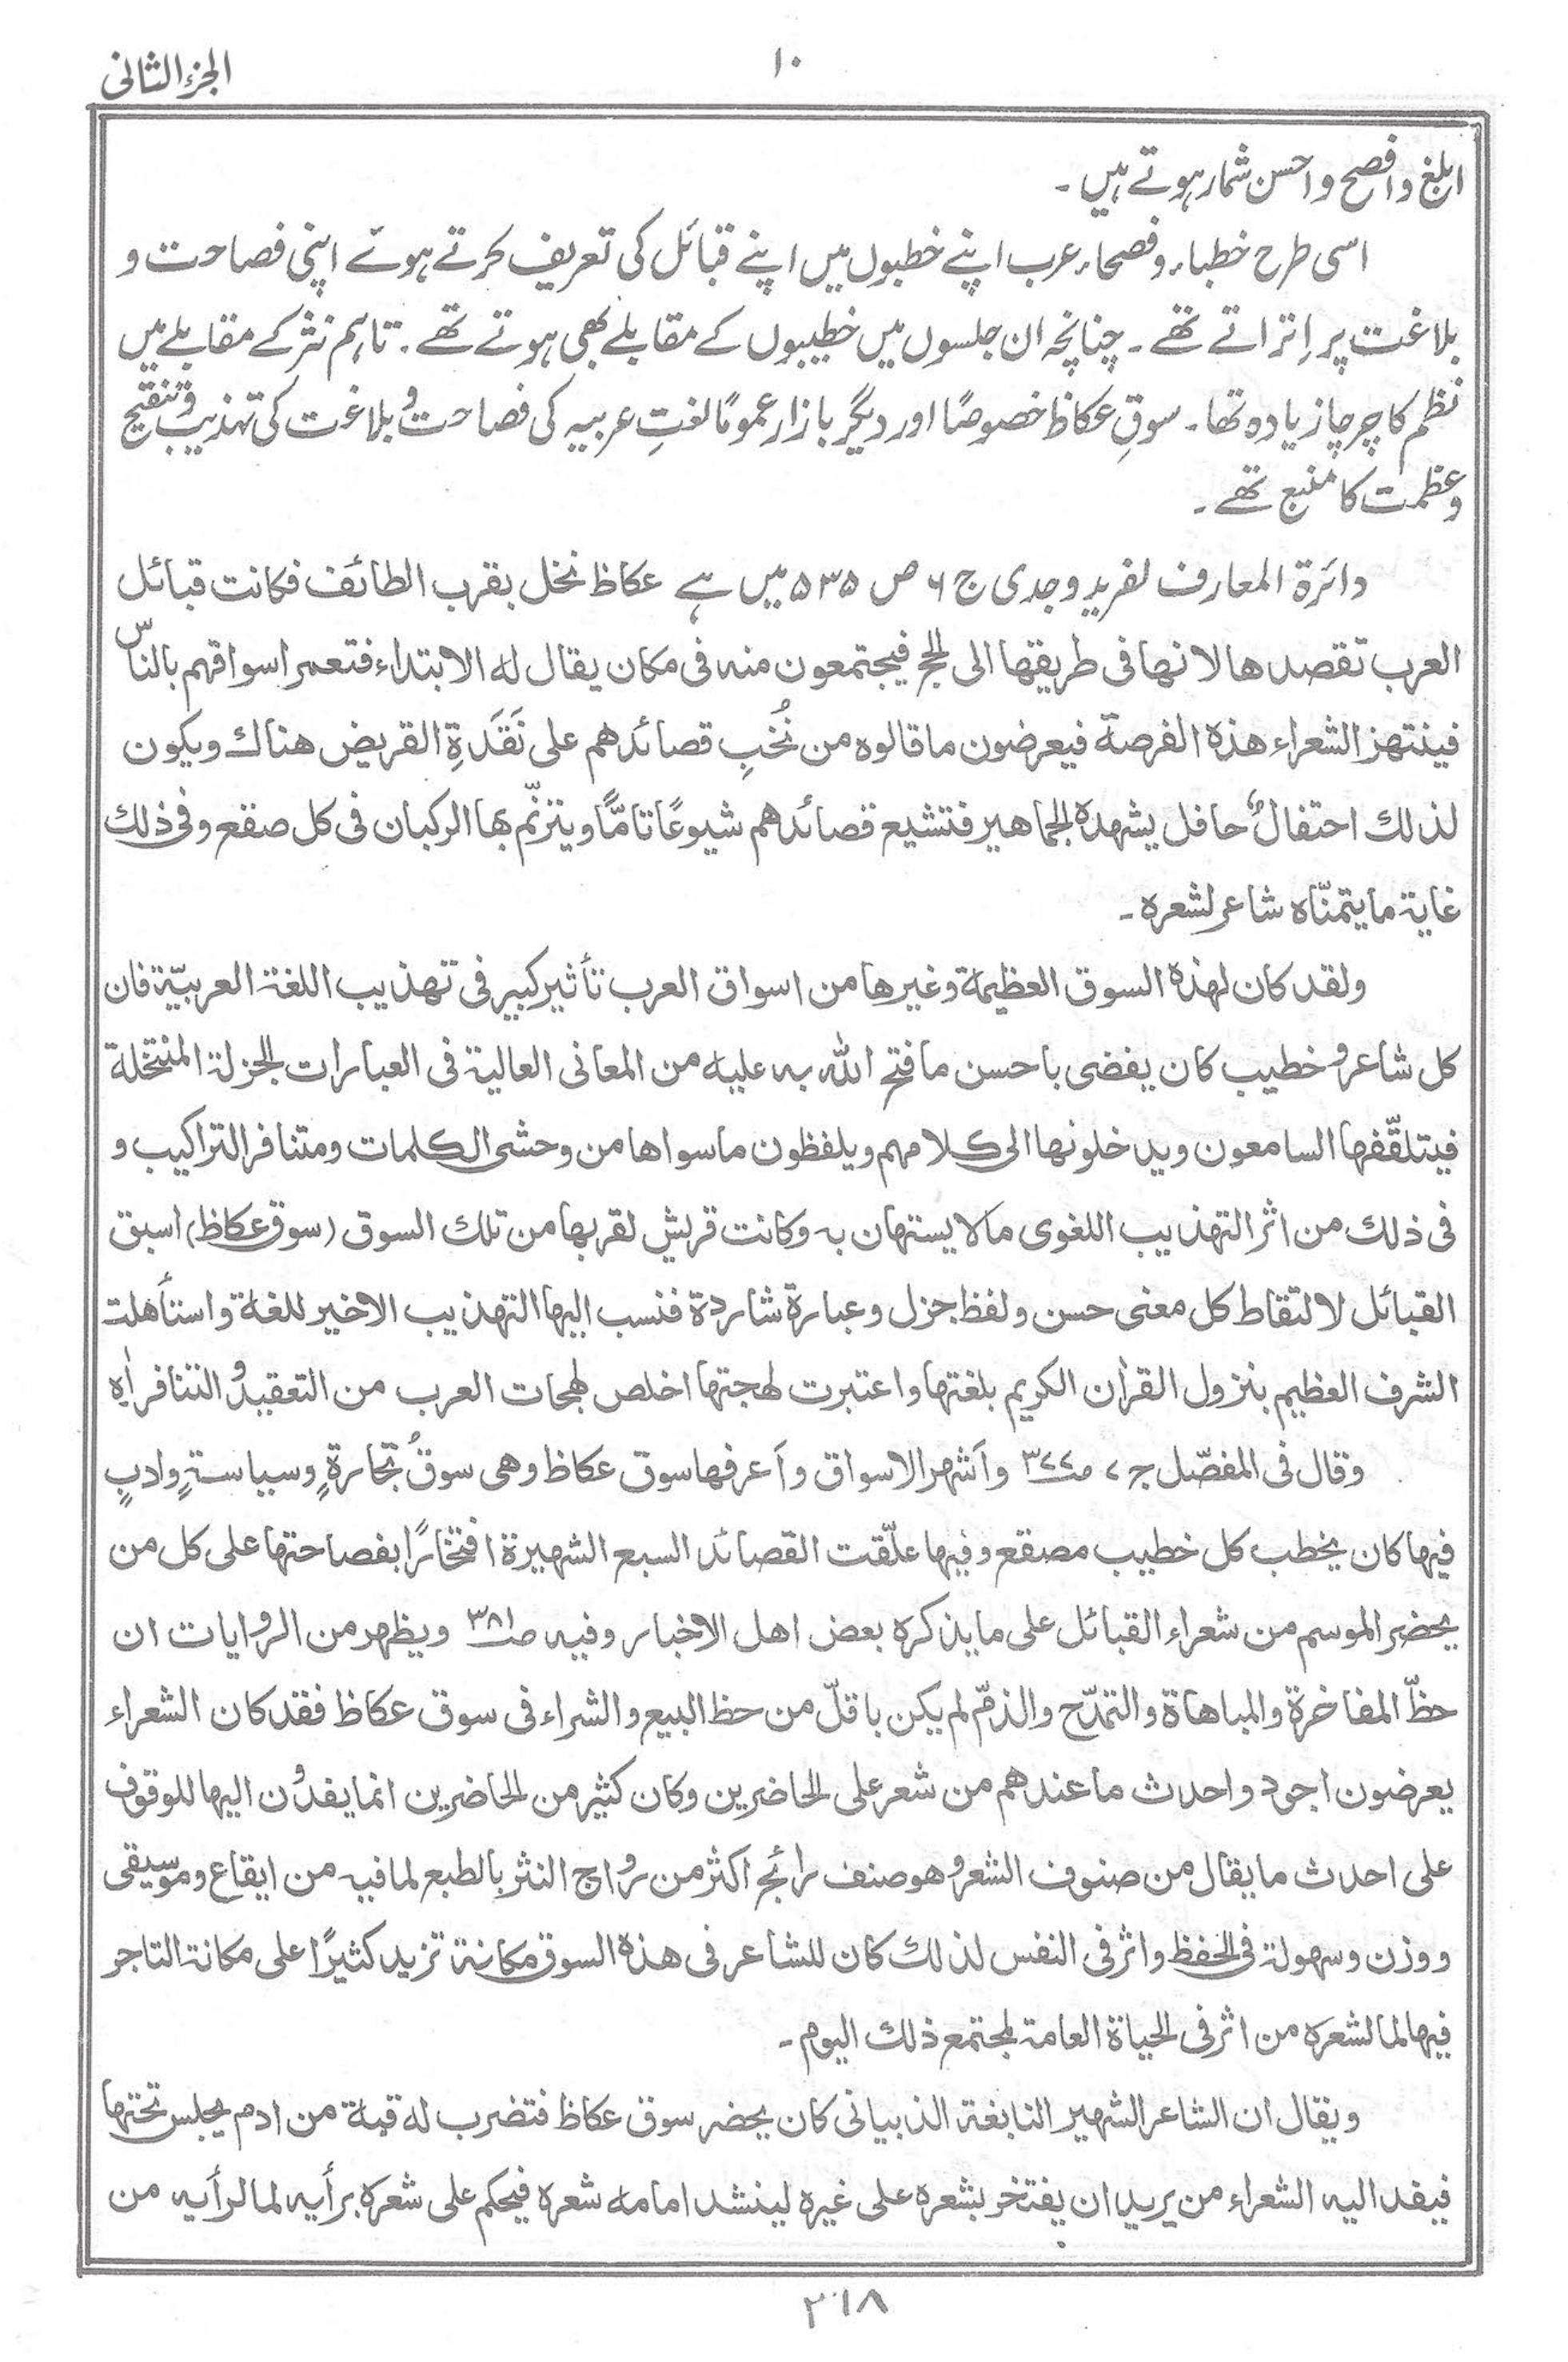 الجزء الثانی
۱۰
ابلغ و افصح و احسن شمار ہوتے ہیں ۔
اسی طرح خطباء و فصحاء عرب اپنے خطبوں میں اپنے قبائل کی تعریف کرتے ہوئے اپنی فصاحت و
بلاغت پر اِتراتے تھے ۔ چنانچہ ان جلسوں میں خطیبوں کے مقابلے بھی ہوتے تھے ۔ تاہم نثر کے مقابلے میں
نظم کا چرچا زیادہ تھا ۔ سوقِ عکاظ خصوصًا اور دیگر بازار عمومًا لغتِ عربیہ کی فصاحت و بلاغت کی تہذیب و تنقیح
و عظمت کا منبع تھے ۔
دائرۃ المعارف لفرید وجدی ج ۶ ص ۵۳۵ میں ہے عکاظ نخل بقرب الطائف فکانت قبائل
العرب تقصدها لانها فی طریقها الی الحج فیجتمعون منه فی مکان یقال له الابتداء فتعمر اسواقهم بالناس
فینتهز الشعراء هذه الفرصة فیعرضون ما قالوه من نُخَبِ قصائدهم علی نَقَدَةِ القریض هناك ویکون
لذلك احتفالٌ حافل یشهده الجماهیر فتشیع قصائدهم شیوعًا تامًّا ویترنّم بها الرکبان فی کل صقع وفی ذلك
غایة ما یتمنّاه شاعر لشعره ۔
ولقد کان لهذه السوق العظیمة وغیرها من اسواق العرب تأثیر کبیر فی تهذیب اللغة العربیّة فان
کل شاعر و خطیب کان یفضی باحسن ما فتح الله به علیه من المعانی العالیة فی العبارات الجزلة المنتخلة
فیتلقّفها السامعون ویدخلونها الی کلامهم ویلفظون ما سواها من وحشی الکلمات ومتنافر التراکیب و
فی ذلك من اثر التهذیب اللغوی ما لا یستهان به وکانت قریش لقربها من تلك السوق (سوق عکاظ) اسبق
القبائل لالتقاط کل معنی حسن ولفظ جزل وعبارة شاردة فنسب الیها التهذیب الاخیر للغة واستأهلت
الشرف العظیم بنزول القراٰن الکریم بلغتها واعتبرت لهجتها اخلص لهجات العرب من التعقید و التنافر اٰه
وقال فی المفصّل ج ۷ ص ۳۷۷ وأشهر الاسواق وأعرفها سوق عکاظ وهی سوقُ تجارةٍ وسیاسةٍ وادبٍ
فیها کان یخطب کل خطیب مصقع وفیها علّقت القصائد السبع الشهیرة افتخارًا بفصاحتها علی کل من
یحضر الموسم من شعراء القبائل علی ما یذکره بعض اهل الاخبار وفیه ص ۳۸۱ ویظهر من الروایات ان
حظّ المفاخرة والمباهاة والتمدّح والذمّ لم یکن باقلّ من حظ البیع والشراء فی سوق عکاظ فقد کان الشعراء
یعرضون اجود واحدث ما عندهم من شعر علی الحاضرین وکان کثیر من الحاضرین انما یفدون الیها للوقوف
علی احدث ما یقال من صنوف الشعر و هو صنف رائج اکثر من رواج النثر بالطبع لما فیه من ایقاع وموسیقی
ووزن وسهولة فی الحفظ واثر فی النفس لذلك کان للشاعر فی هذه السوق مکانة تزید کثیرًا علی مکانة التاجر
فیها لما لشعره من اثر فی الحیاة العامة لمجتمع ذلك الیوم ۔
ویقال ان الشاعر الشهیر النابغة الذبیانی کان یحضر سوق عکاظ فتضرب له قبة من ادم یجلس تحتها
فیفد الیه الشعراء من یرید ان یفتخر بشعره علی غیره لینشد امامه شعره فیحکم علی شعره برأیه لما لرأیه من
۲۱۸